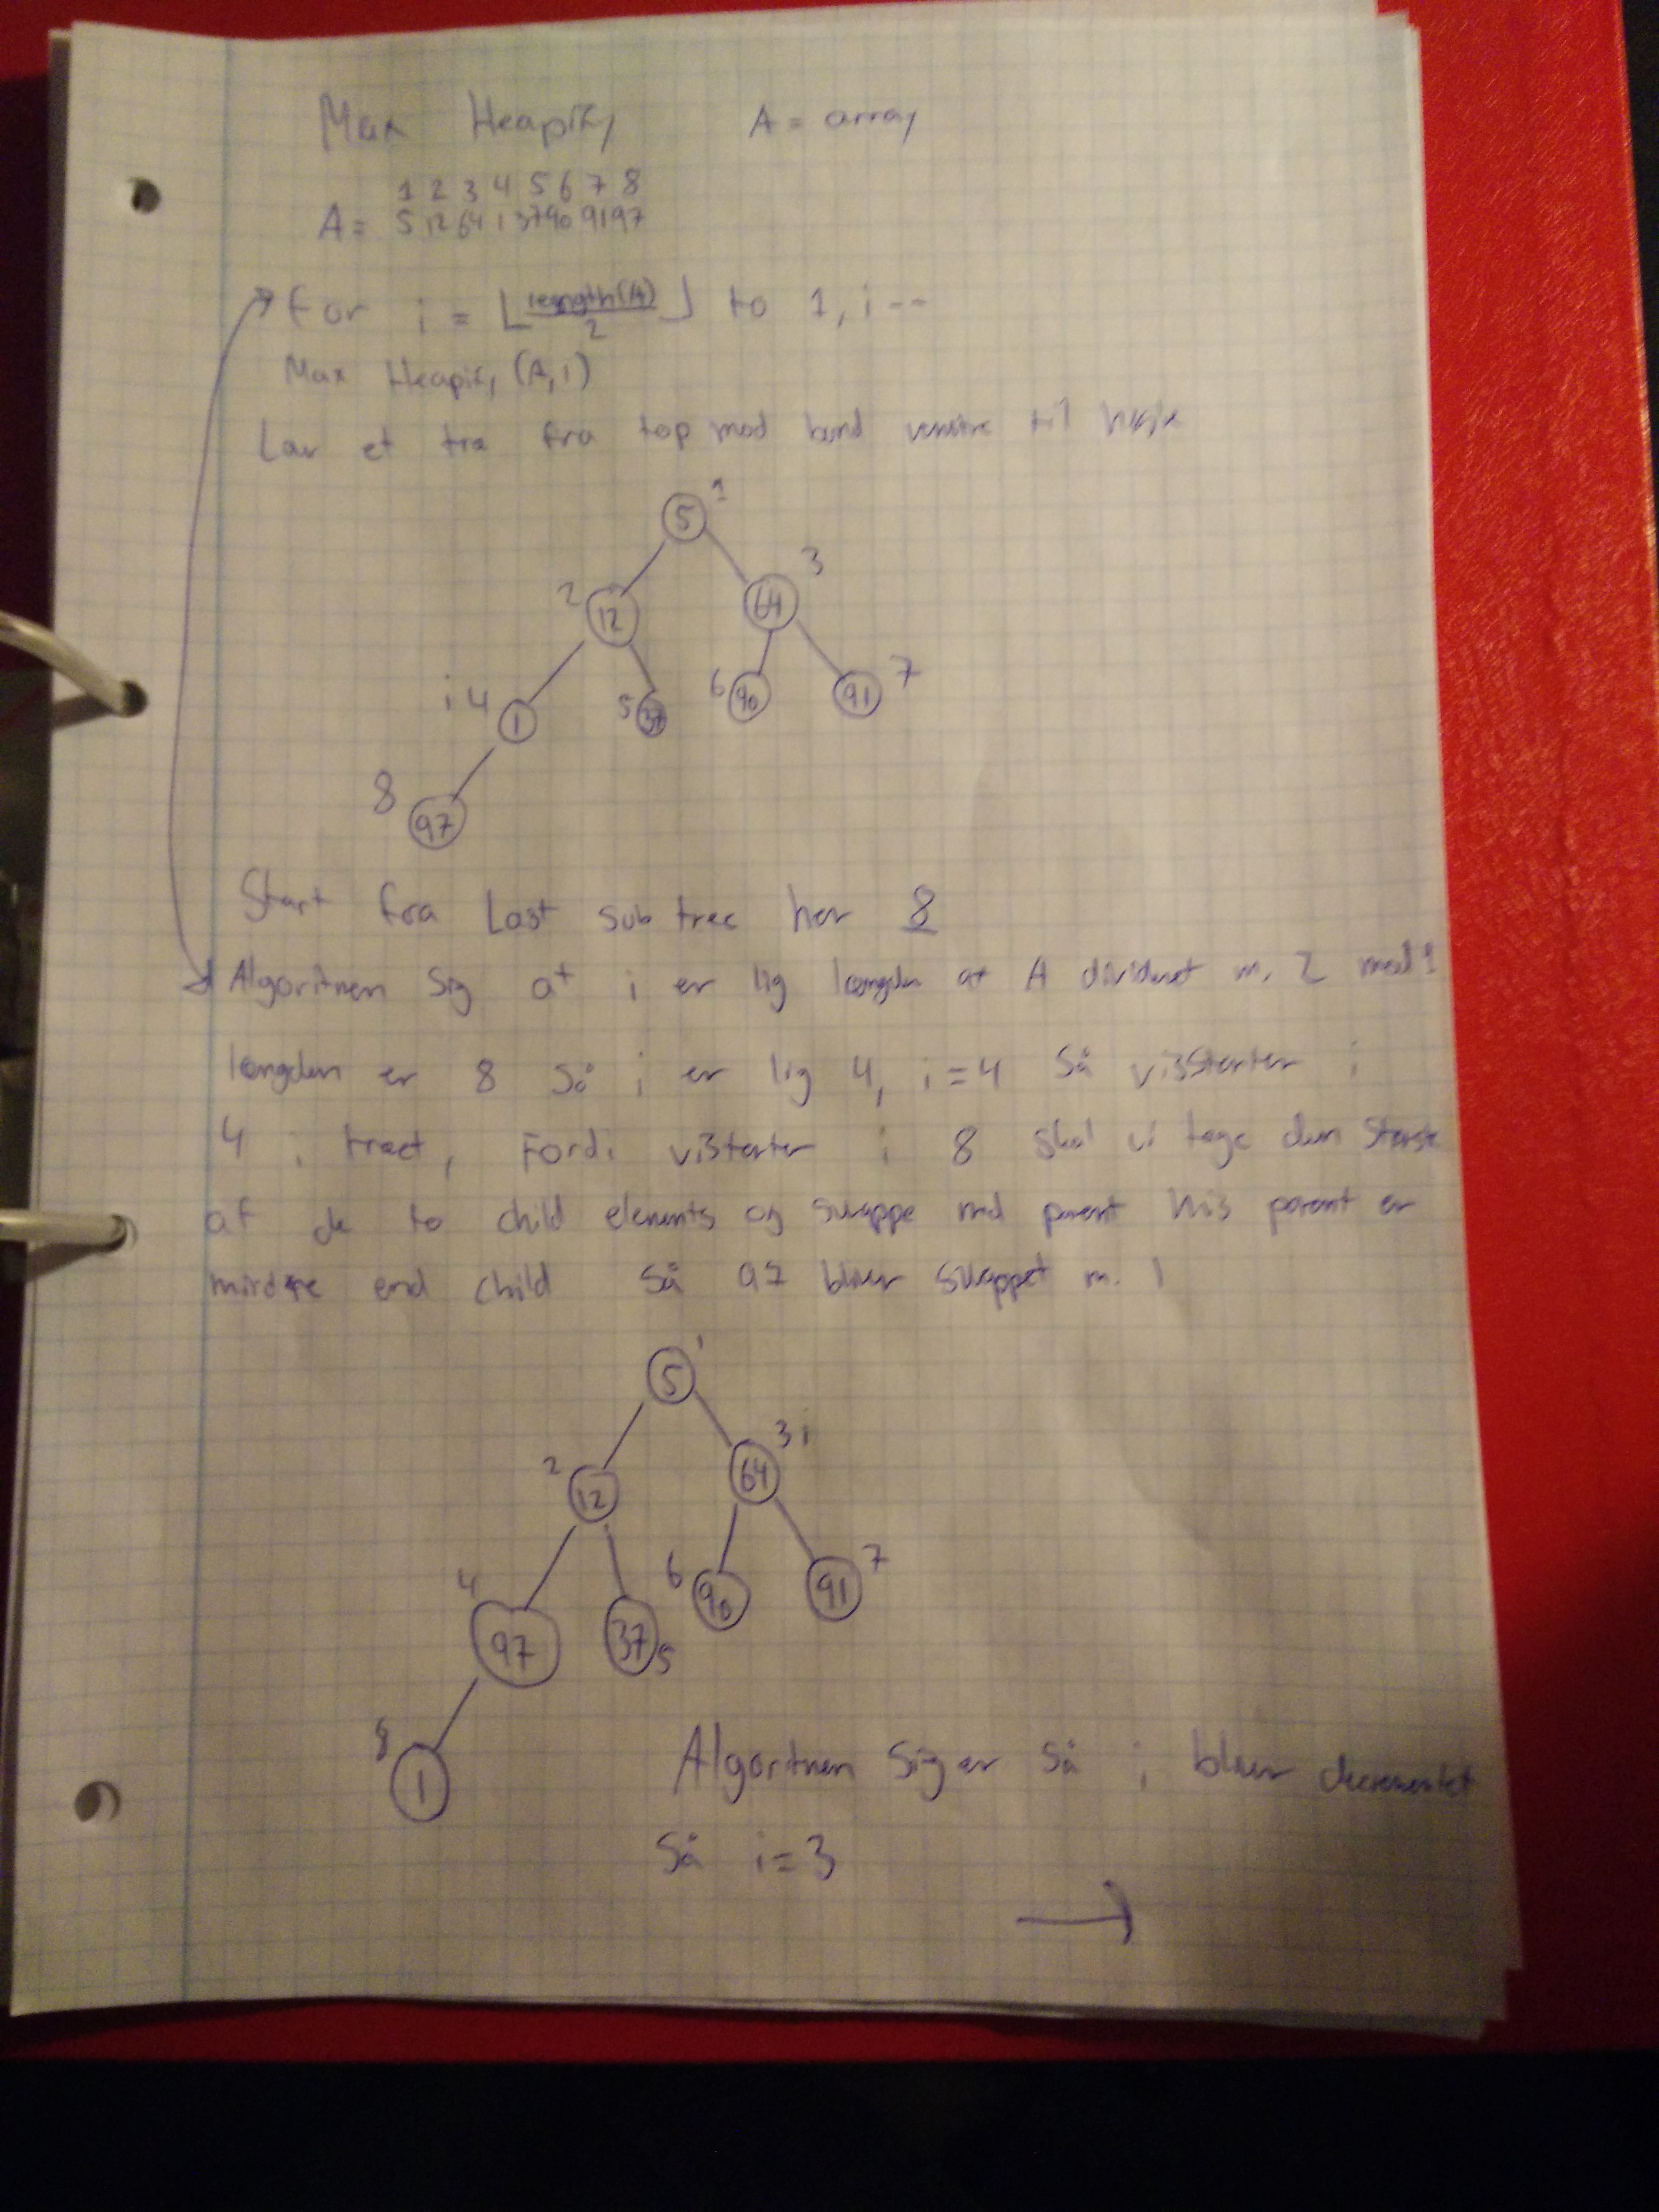 Max Heapify A = array
1 2 3 4 5 6 7 8
A = 5 12 64 1 37 90 91 97
for i = ⌊length(A)/2⌋ to 1, i--
Max Heapify (A, i)
Lav et træ fra top mod bund venstre til højre
5 1
2 12 64 3
i 4 1 5 37 6 90 91 7
8 97
Start fra Last sub tree her 8
Algoritmen sig at i er lig længden af A divideret m. 2 med
længden er 8 så i er lig 4, i=4 Så vi starter i
4 i træet, Fordi vi starter i 8 skal vi tage den største
af de to child elements og swappe med parent hvis parent er
mindre end child så 97 bliver swappet m. 1
5 1
2 12 64 3 i
4 97 37 5 6 90 91 7
8 1
Algoritmen siger så i bliver decrementet
Så i=3